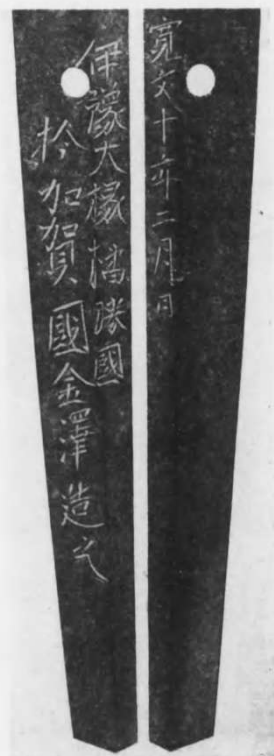 寛文十年二月日
伊豫大掾橘勝國
於加賀國金澤造之